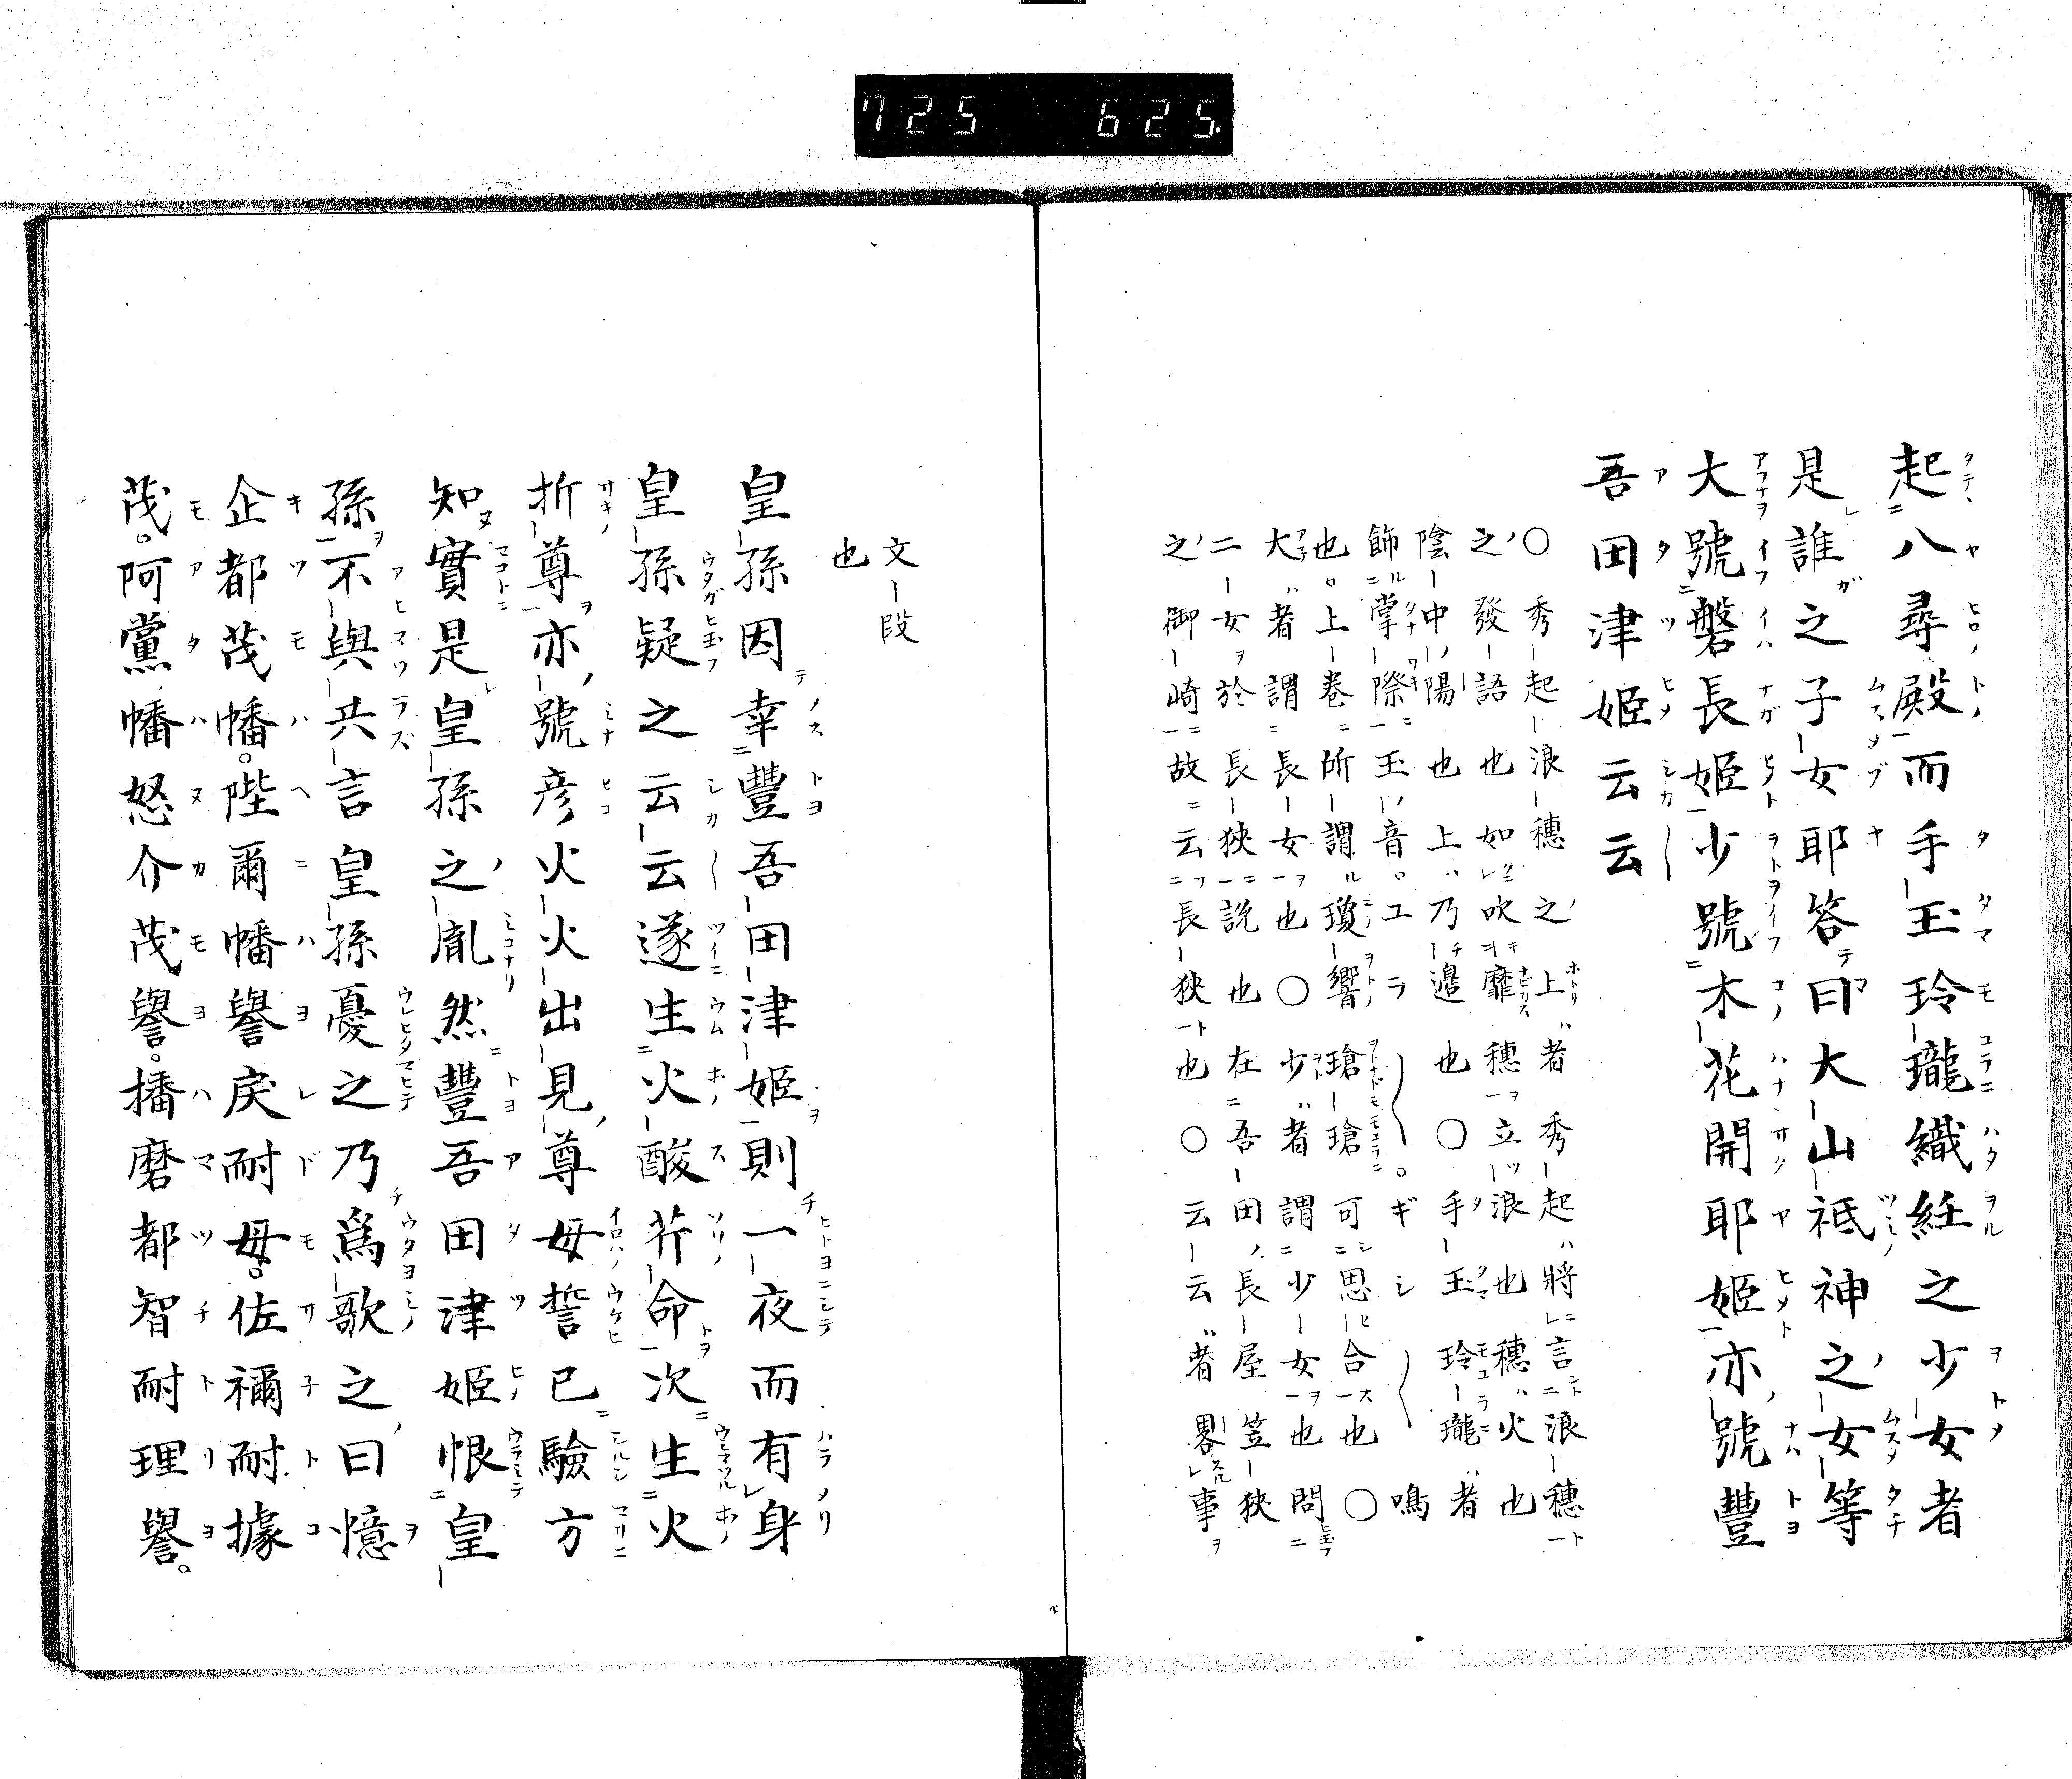 725 625.
起八尋殿而手玉玲瓏織紝之少女者
是誰之子女耶答曰大山祇神之女等
大號磐長姬少號木花開耶姬亦號豐
吾田津姬云云
○秀起浪穗之上者秀起將言浪穗
之發語也如吹靡穗立浪也穗火也
陰中陽也上乃邉也○手玉玲瓏者
飾掌際玉音。ユラ〱。ギシ〱鳴
也。上巻所謂瓊響瑲瑲可思合也○
大者謂長女也○少者謂少女也問
二女於長狹説也在吾田長屋笠狹
之御崎故云長狹也○云云者畧事
文段
也
皇孫因幸豐吾田津姬則一夜而有身
皇孫疑之云云遂生火酸芹命次生火
折尊亦號彦火火出見尊母誓已驗方
知實是皇孫之胤然豐吾田津姬恨皇
孫不與共言皇孫憂之乃爲歌之曰憶
企都茂幡。陛爾幡譽戻耐母。佐禰耐據
茂。阿黨幡怒介茂譽。播磨都智耐理譽。